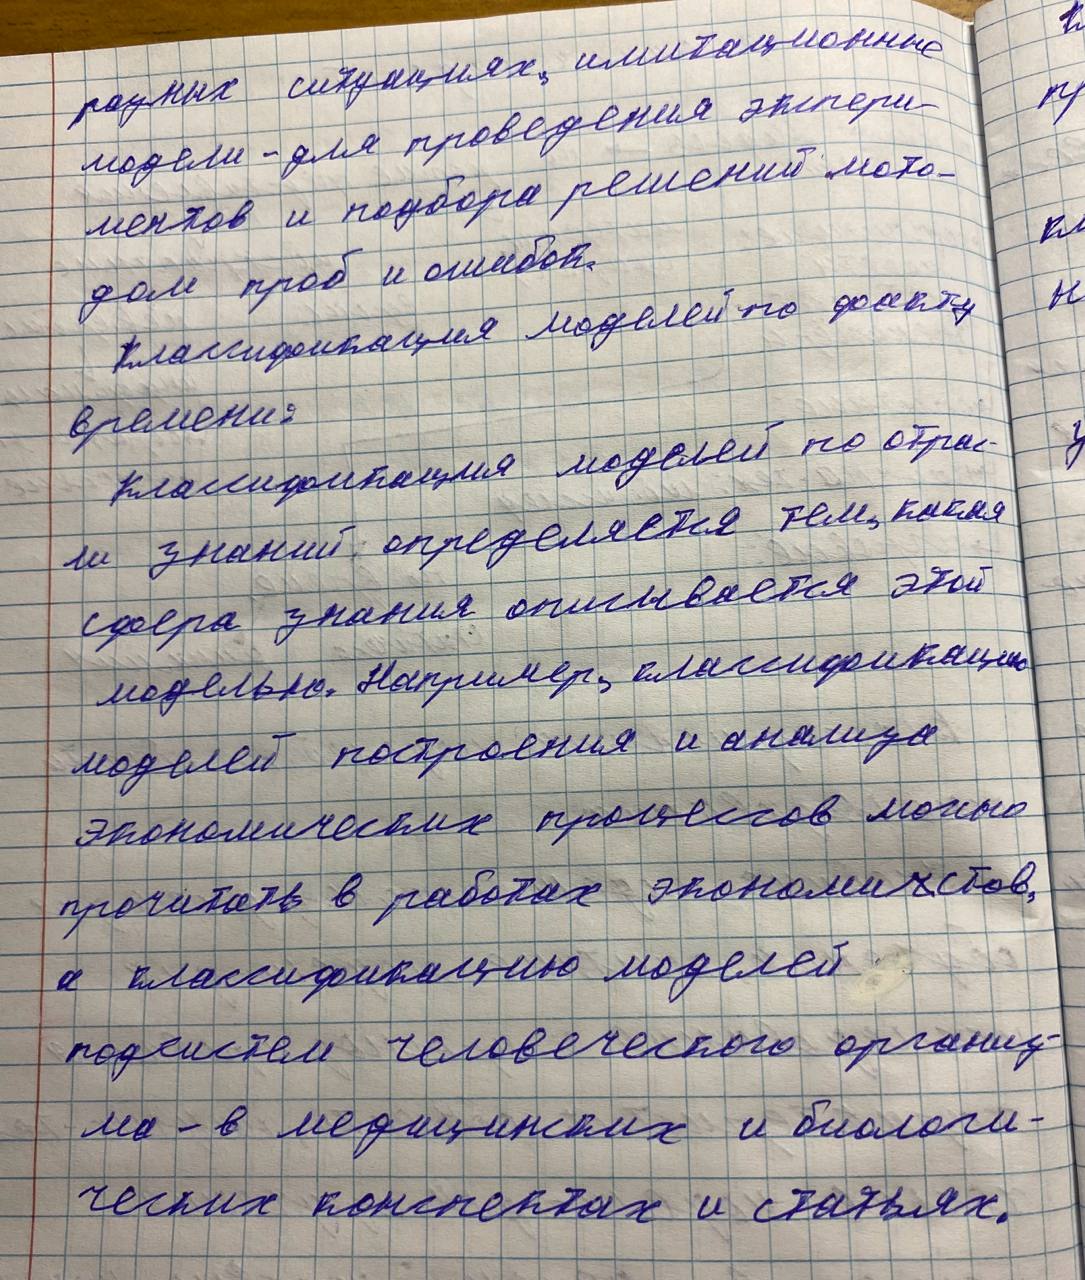 разных ситуациях, имитационные
модели - для проведения экспери-
ментов и подбора решений мето-
дом проб и ошибок.
Классификация моделей по факту
времени:
Классификация моделей по отрас-
ли знаний определяется тем, какая
сфера знания описывается этой
моделью. Например, классификацию
моделей построения и анализа
экономических процессов можно
прочитать в работах экономистов,
а классификацию моделей
подсистем человеческого организ-
ма - в медицинских и биологи-
ческих конспектах и статьях.